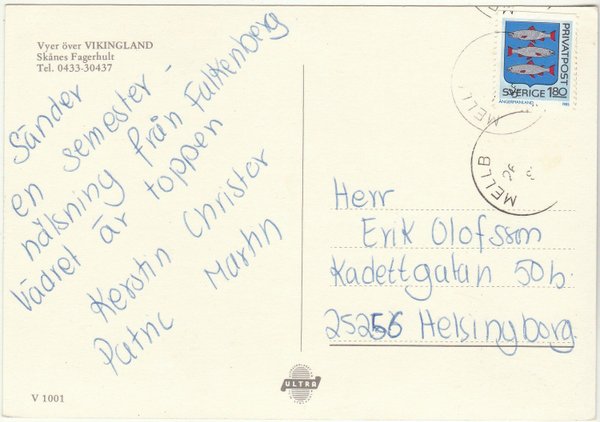 Vyer över VIKINGLAND
Skånes Fagerhult
Tel. 0433-30437
Sänder
en semester-
hälsning från Falkenberg
Vädret är toppen
Kerstin Christer
Patric Martin
PRIVATPOST
SVERIGE 1.80
ÅNGERMANLAND 1983
MELLB
MELLB
Herr
Erik Olofsson
Kadettgatan 50 b
25256 Helsingborg
ULTRA
V 1001